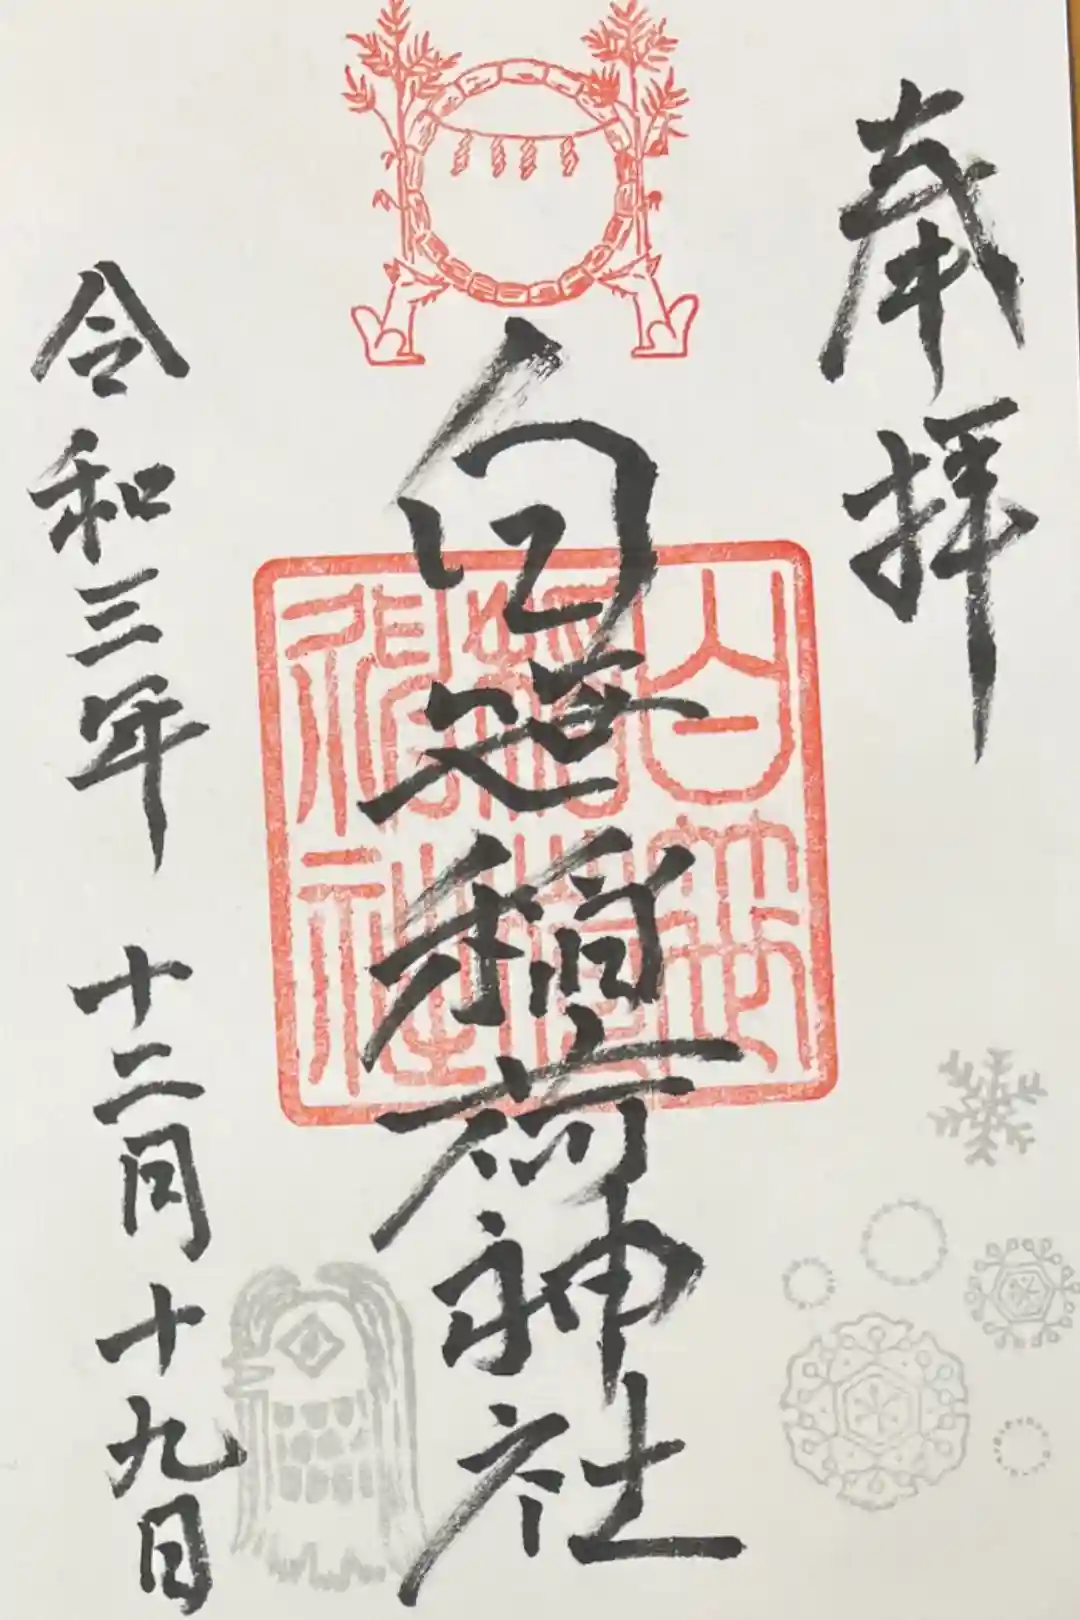 奉拝
白笹稲荷神社
令和三年 十二月十九日
白笹稲荷神社